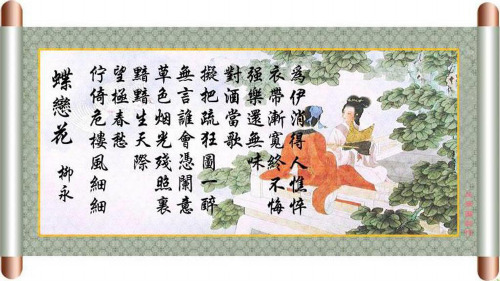 蝶戀花
柳永
佇倚危樓風細細
望極春愁
黯黯生天際
草色烟光殘照裏
無言誰會憑闌意
擬把疏狂圖一醉
對酒當歌
强樂還無味
衣帶漸寬終不悔
爲伊消得人憔悴